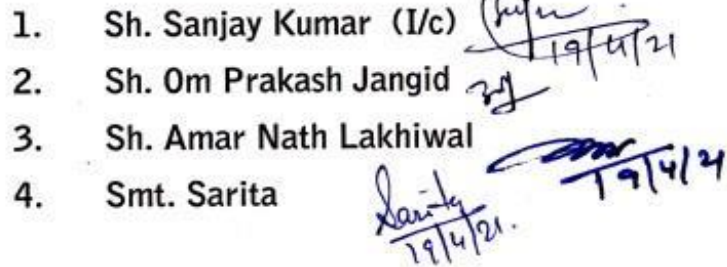 1. Sh. Sanjay Kumar (I/c)
19/4/21
2. Sh. Om Prakash Jangid
3. Sh. Amar Nath Lakhiwal
19/4/21
4. Smt. Sarita
Sarita
19/4/21.